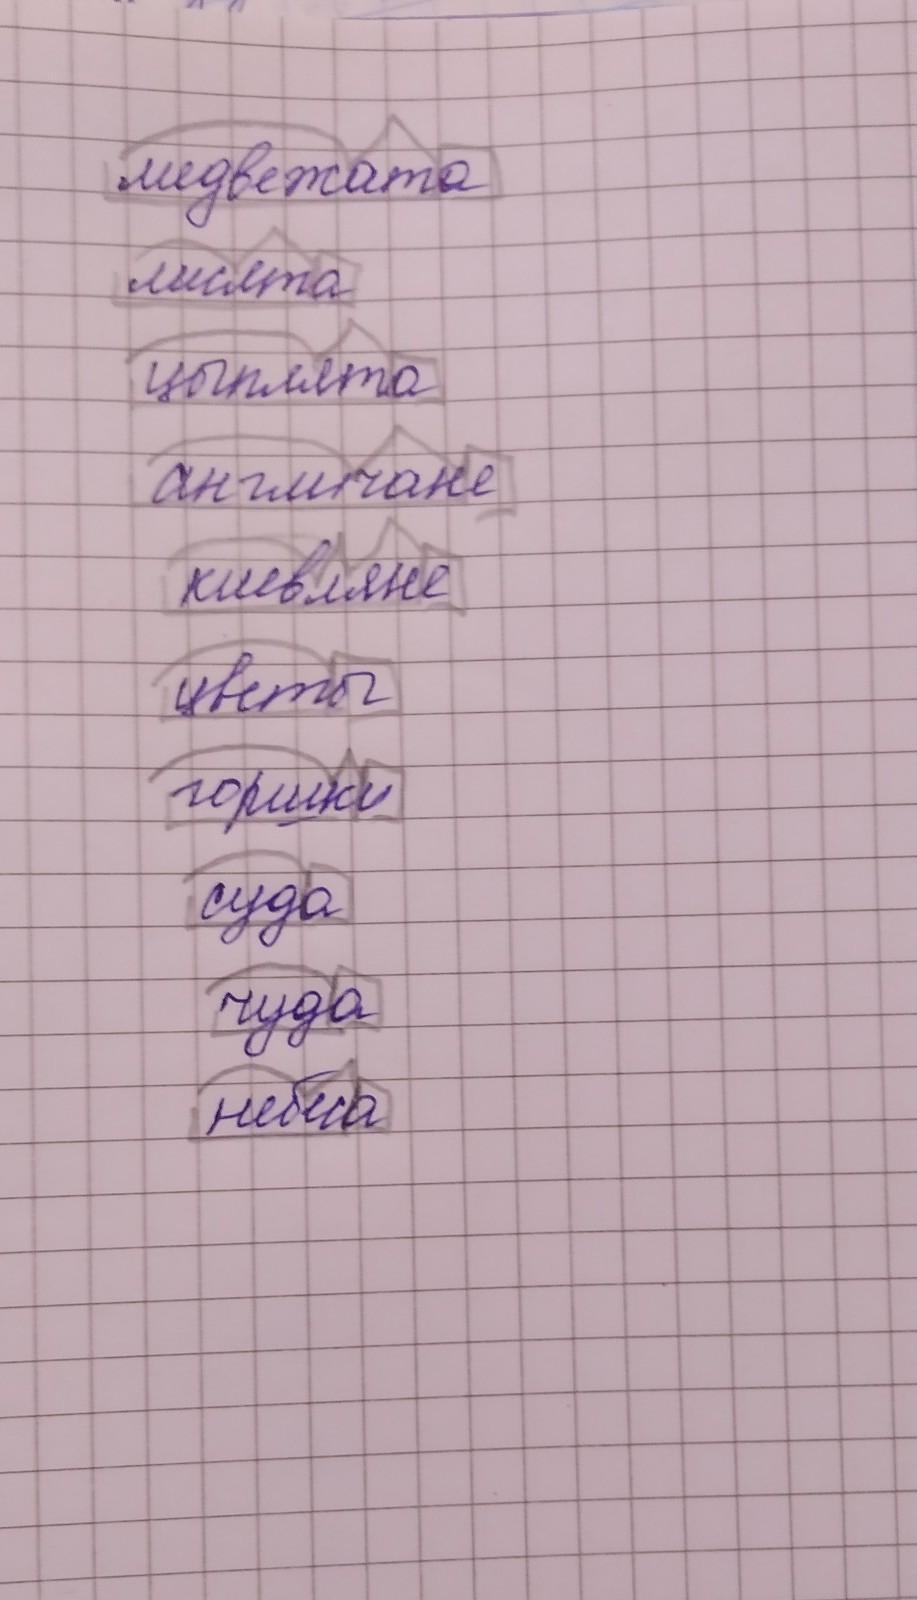 медвежата
лисята
цыплята
англичане
киевляне
цветы
горшки
суда
чуда
небеса